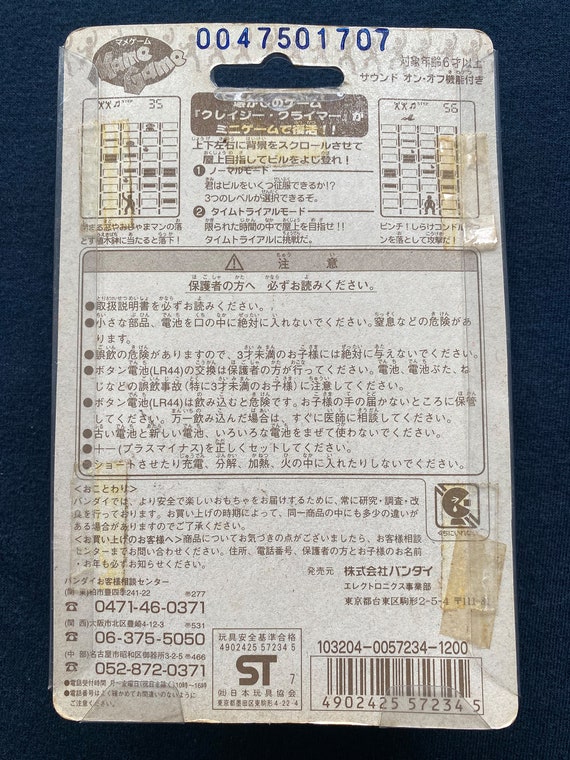 0047501707
マメゲーム
Mame Game
対象年齢6才以上
サウンド オン・オフ機能付き
STEP 35
STEP 56
懐かしのゲーム
『クレイジー・クライマー』が
ミニゲームで復活!!
上下左右に背景をスクロールさせて
屋上目指してビルをよじ登れ!
❶ ノーマルモード
君はビルをいくつ征服できるか!?
3つのレベルが選択できるぞ。
❷ タイムトライアルモード
限られた時間の中で屋上を目指せ!!
タイムトライアルに挑戦だ。
閉まる窓やおじゃまマンの落
とす植木鉢に当たると落下!
ピンチ!しらけコンドル
ンを落として攻撃だ!
⚠ 注意
保護者の方へ 必ずお読みください。
●取扱説明書を必ずお読みください。
●小さな部品、電池を口の中に絶対に入れないでください。窒息などの危険があ
ります。
●誤飲の危険がありますので、3才未満のお子様には絶対に与えないでください。
●ボタン電池(LR44)の交換は保護者の方が行ってください。電池、電池ぶた、ね
じなどの誤飲事故(特に3才未満のお子様)に注意してください。
●ボタン電池(LR44)は飲み込むと危険です。お子様の手の届かないところに保管
してください。万一飲み込んだ場合は、すぐに医師に相談してください。
●古い電池と新しい電池、いろいろな電池をまぜて使わないでください。
●+-(プラスマイナス)を正しくセットしてください。
●ショートさせたり充電、分解、加熱、火の中に入れたりしないでください。
<おことわり>
バンダイでは、より安全で楽しいおもちゃをお届けするために、常に研究・調査・改
良を行っております。お買い上げの時期によって、同一商品の中にも多少の違いが
ある場合がありますのでご了承ください。
<お買い上げのお客様へ>商品についてお気づきの点がございましたら、お客様相談
センターまでお問い合わせください。住所、電話番号、保護者の方とお子様のお名前
・お年も必ずお知らせください。
バンダイお客様相談センター
(関 東)柏市豊四季241-22 〒277
☎ 0471-46-0371
(関 西)大阪市北区豊崎4-12-3 〒531
☎ 06-375-5050
(中 部)名古屋市昭和区御器所3-2-5 〒466
☎ 052-872-0371
●電話受付時間 月~金曜日(祝日を除く)10時~16時
●電話番号はよく確かめてお間違いのないように
ご注意ください。
発売元 株式会社バンダイ
エレクトロニクス事業部
東京都台東区駒形2-5-4 〒111-81
玩具安全基準合格
4902425 57234 5
ST 7
(社)日本玩具協会
東京都墨田区東駒形4-22-4
103204-0057234-1200
4902425 57234 5